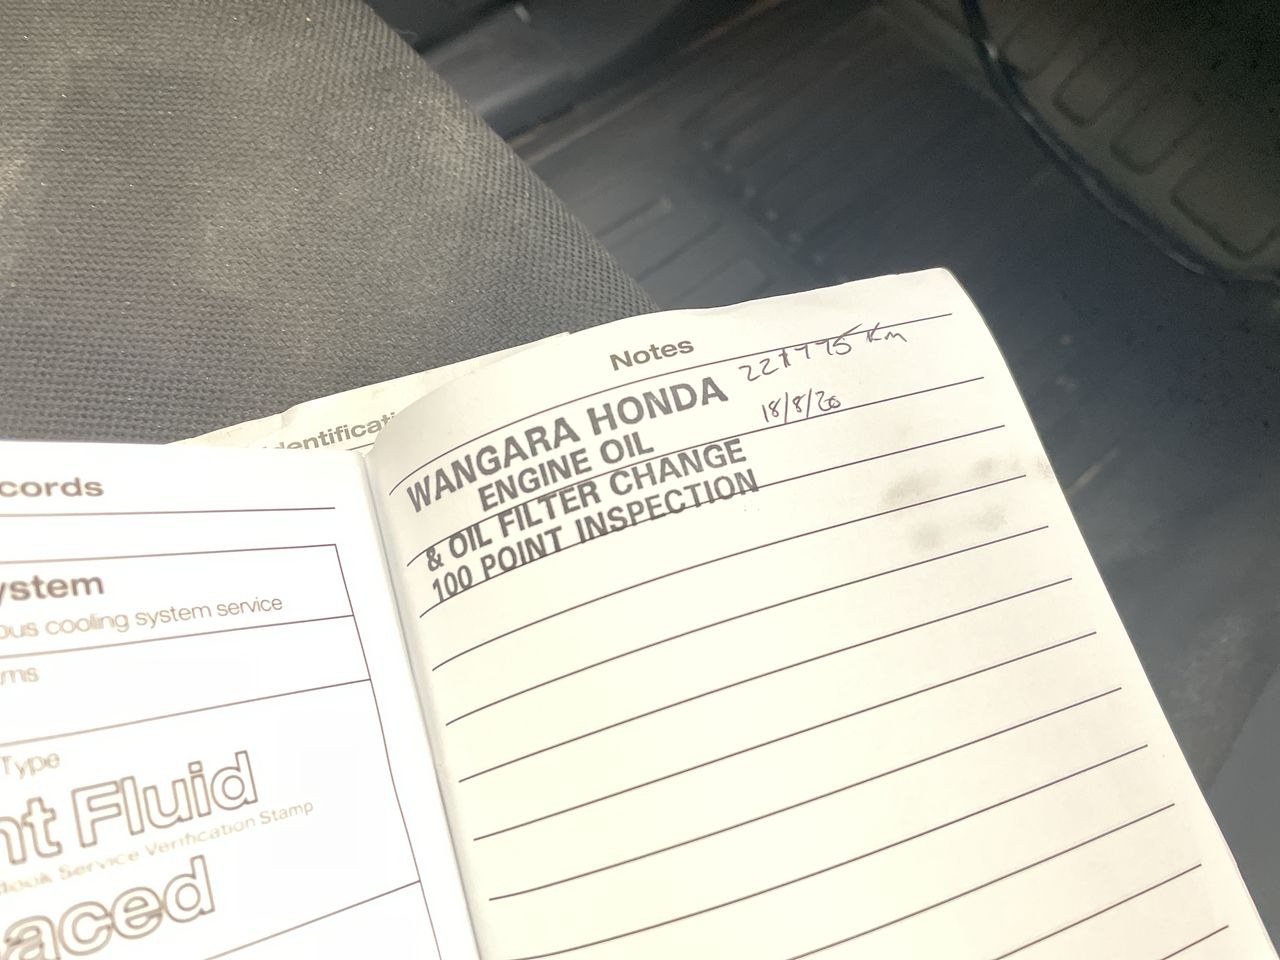 cords
ystem
ous cooling system service
ms
Type
nt Fluid
Book Service Verification Stamp
aced
dentificati
Notes
WANGARA HONDA
ENGINE OIL
& OIL FILTER CHANGE
100 POINT INSPECTION
Km
18/8/20